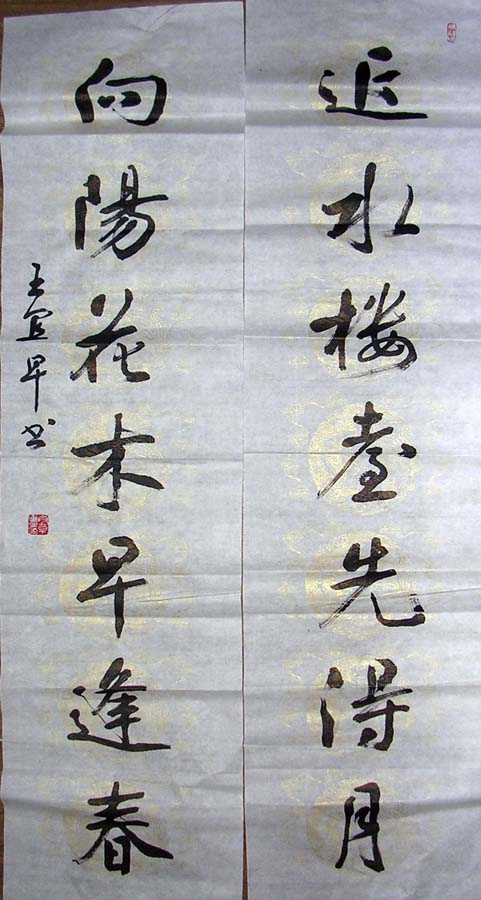 近水楼臺先得月
向陽花木早逢春
王宜早书